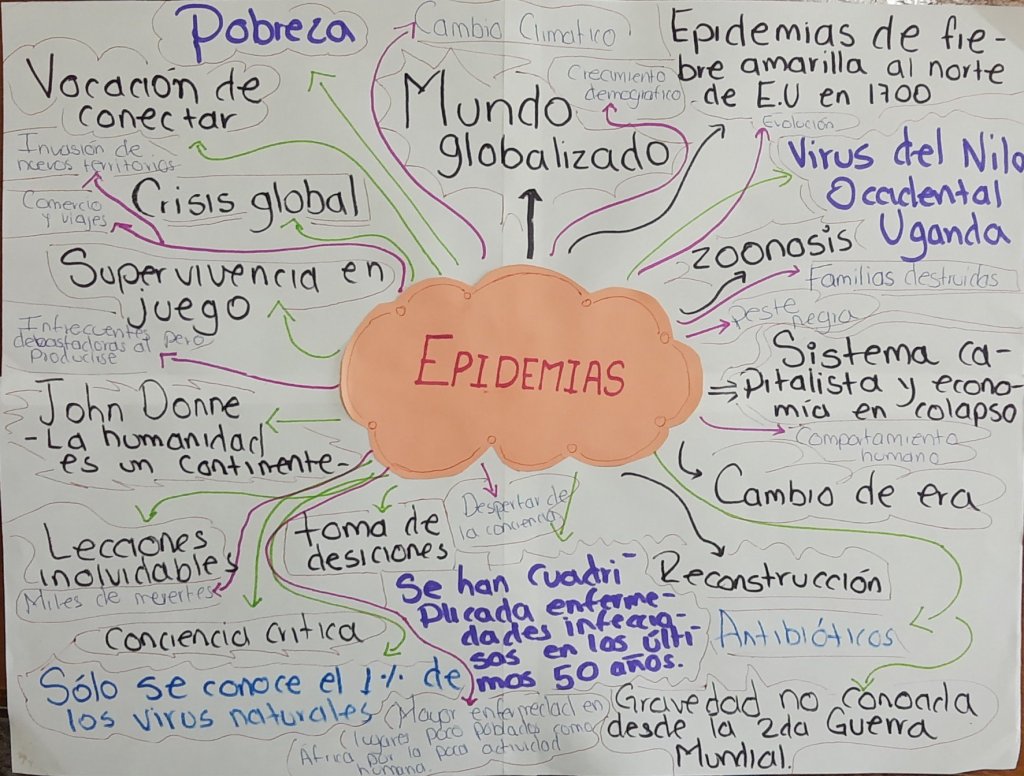 Pobreza
Cambio Climatico
Epidemias de fie-
bre amarilla al norte
de E.U en 1700
Vocación de
conectar
Mundo
globalizado
Crecimiento
demografico
Evolución
Invasión de
nuevos territorios
Virus del Nilo
Occidental
Uganda
Comercio
y viajes
Crisis global
zoonosis
Familias destruidas
Supervivencia en
juego
peste
negra
Infrecuentes pero
debastadoras al
producirse
EPIDEMIAS
Sistema ca-
pitalista y econo-
mía en colapso
John Donne
- La humanidad
es un continente-
Comportamiento
humano
Cambio de era
Lecciones
inolvidables
toma de
desiciones
Despertar de
la conciencia
Miles de muertes
Se han cuadri-
plicada enferme-
dades infeccio-
sos en los últi-
mos 50 años.
Reconstrucción
Conciencia critica
Antibióticos
Sólo se conoce el 1% de
los virus naturales
Mayor enfermedad en
lugares poco poblados como
África por la poca actividad
humana.
Gravedad no conocida
desde la 2da Guerra
Mundial.